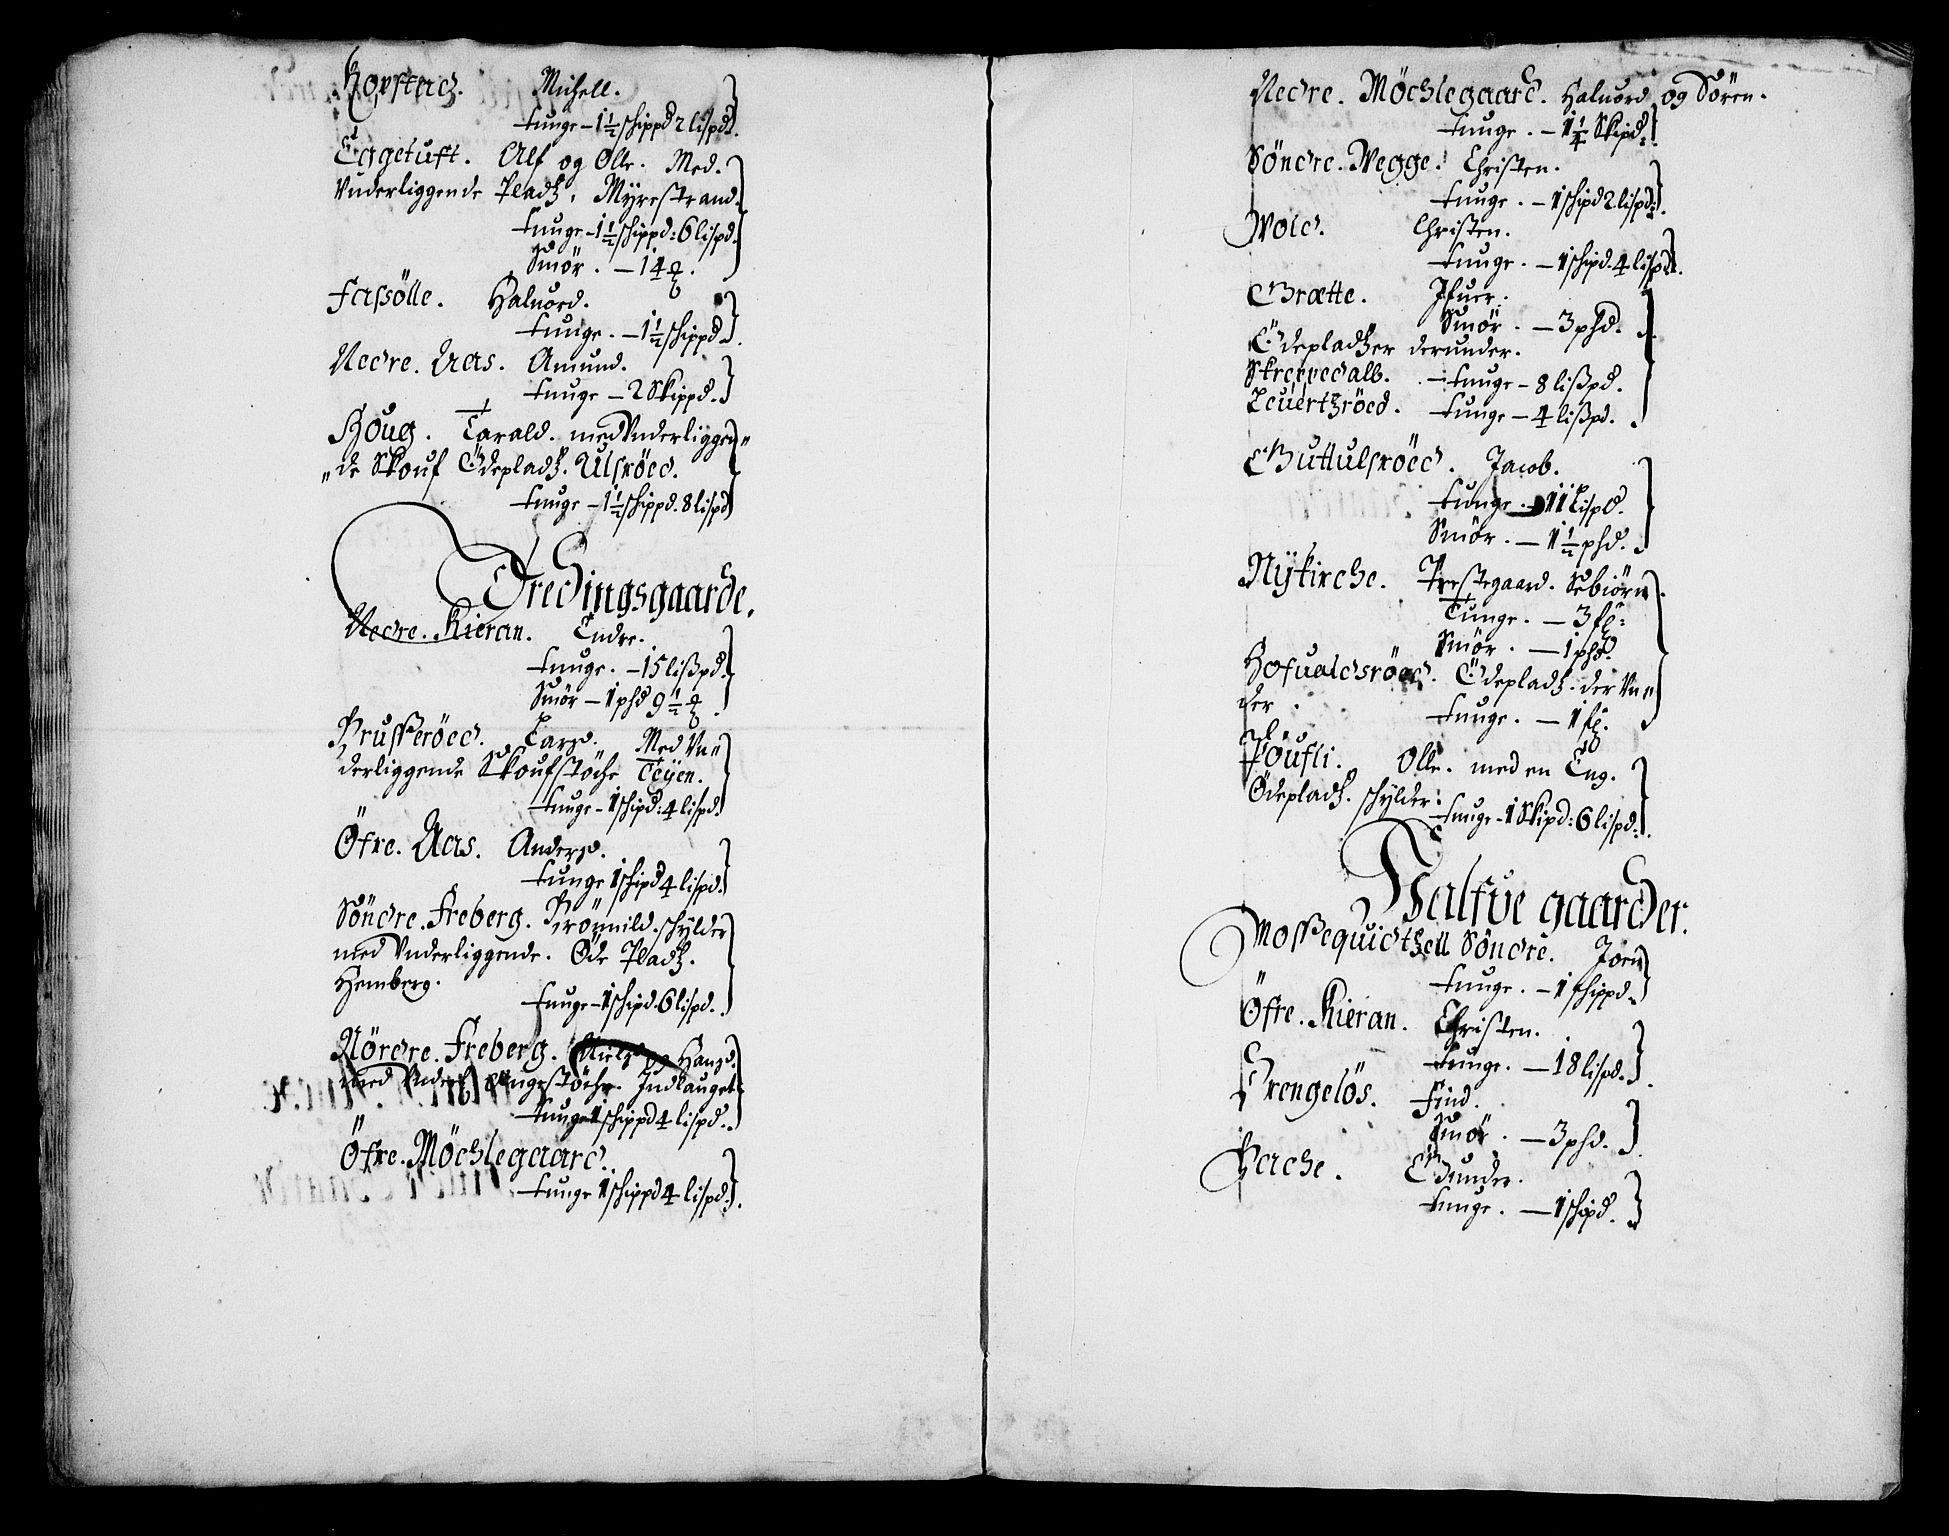 Hopstad. Michell.
tunge - 1½ schippd 2 lispd.
Eggetuft. Alf og Olle. Med.
Vnderliggende Pladtz. Myrestrand.
tunge - 1½ schippd: 6 lispd.
Smör. - 14 ℔.
Fassölle. Haluord.
tunge. - 1½ schippd.
Nedre. Aas. Amund.
tunge - 2 Skippd.
Houg. Tarald. med Vnderliggen„
„de Skouf Ödepladtz. Ulsröed.
tunge - 1½ schippd. 8 lispd
Tredingsgaarde.
Nedre. Kieran. Endre.
tunge. - 15 lißpd.
Smör - 1 phd 9½ ℔.
Prusseröed. Larß. Med Vn„
derliggende Skoufstöche Teÿen.
tunge - 1 schipd: 4 lispd.
Öfre. Aas. Anderß.
tunge 1 schipd 4 lispd.
Söndre. Freberg. Brönnild. schylder
med Vnderliggende. Öde Pladtz.
Hemberg.
tunge - 1 schipd. 6 lispd.
Nördre. Freberg. Nielß og Hanß.
med Vnderl. Engestöche. Indlauget
tunge 1 schippd 4 lispd.
Öfre. Möchlegaard.
tunge 1 schippd 4 lispd.
Nedre. Möchlegaard. Haluord og Sören.
tunge. - 1¼ Skipd.
Söndre. Wegge. Christen.
tunge. - 1 schipd 2 lispd.
Wold. Christen.
tunge. - 1 schipd. 4 lispd.
Grætte. Ifuer.
Smör. - 3 phd.
Ödepladtzer derunder.
Skreppedalb. - tunge - 8 lißpd.
Leuertzröed. tunge - 4 lißpd.
Guttulsröed. Jacob.
tunge - 11 Lispd.
Smör. - 1½ phd.
Nÿkirche. Prestegaard. Sebiörn.
Tunge. - 3 fl:
Smör. - 1 phd.
Hofualdsröed. Ödepladtz. der Vn„
der. tunge. - 1 fl.
Olle. med en Eng.
Ödepladtz. schylder:
tunge - 1 Skipd: 6 lispd:
Halfue gaarder.
Mossequidtzell Söndre. Joen
tunge. - 1 schippd.
Öfre. Kieran. Christen.
tunge. - 18 lispd.
Trengelös. Find.
Smör. - 3 phd.
Hache. Gunder.
tunge. - 1 schipd.